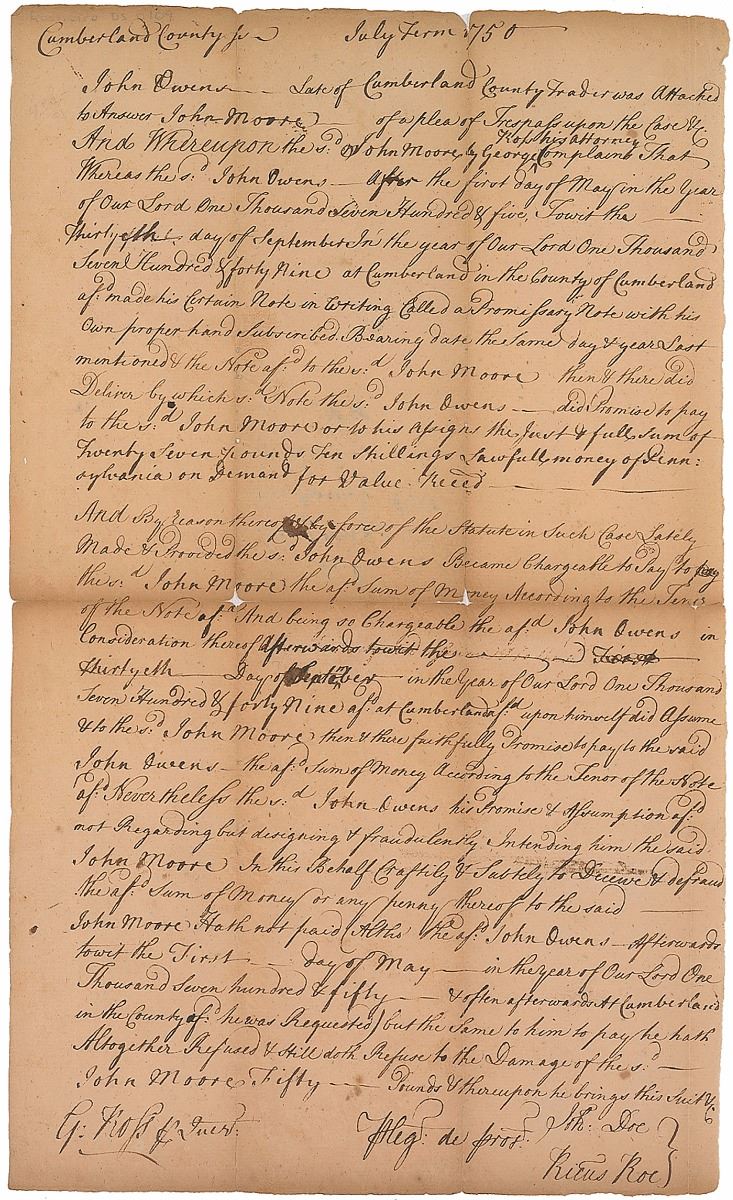 Cumberland County ss July Term 1750
John Owens Late of Cumberland County Trader was Attached
to Answer John Moore of a plea of Trespass upon the Case &c
And Whereupon the s:d John Moore by George Ross his attorney Complains That
Whereas the s:d John Owens After the first day of May in the Year
of Our Lord One Thousand Seven Hundred & five, Towit the
thirtyeth day of September In the year of Our Lord One Thousand
Seven Hundred & forty Nine at Cumberland in the County of Cumberland
af:d made his Certain Note in Writing Called a Promissary Note with his
Own proper hand Subscribed Bearing date the Same day & year Last
mentioned & the Note af:d to the s:d John Moore then & there did
Deliver by which s:d Note the s:d John Owens did Promise to pay
to the s:d John Moore or to his Assigns the Just & full Sum of
Twenty Seven pounds Ten Shillings Lawfull money of Penn:
sylvania on Demand for Value Reced
And By Reason thereof & by force of the Statute in Such Case Lately
Made & Provided the s:d John Owens Became Chargeable to Pay to
the s:d John Moore the af:d Sum of Money According to the Tenor
of the Note af:d And being so Chargeable the af:d John Owens in
Consideration thereof Afterwards towit the
thirtyeth Day of September in the Year of Our Lord One Thousand
Seven Hundred & forty Nine af:d at Cumberland af:d upon himself did Assume
& to the s:d John Moore then & there faithfully Promise to pay to the said
John Owens the af:d Sum of Money According to the Tenor of the Note
af:d Nevertheless the s:d John Owens his Promise & Assumption af:d
not Regarding but designing & fraudulently Intending him the said
John Moore In this Behalf Craftily & Subtely to Deceive & defraud
the af:d Sum of Money or any penny thereof to the said
John Moore Hath not paid (Altho' the af:d John Owens Afterwards
towit the First day of May in the year of Our Lord One
Thousand Seven hundred & fifty & often afterwards At Cumberland
in the County af:d he was Requested) but the Same to him to pay he hath
Altogether Refused & Still doth Refuse to the Damage of the s:d
John Moore Fifty Pounds & thereupon he brings this Suit &c
G: Ross p Quer: Pleg: de pros: Jn: Doe
Ricus Roe